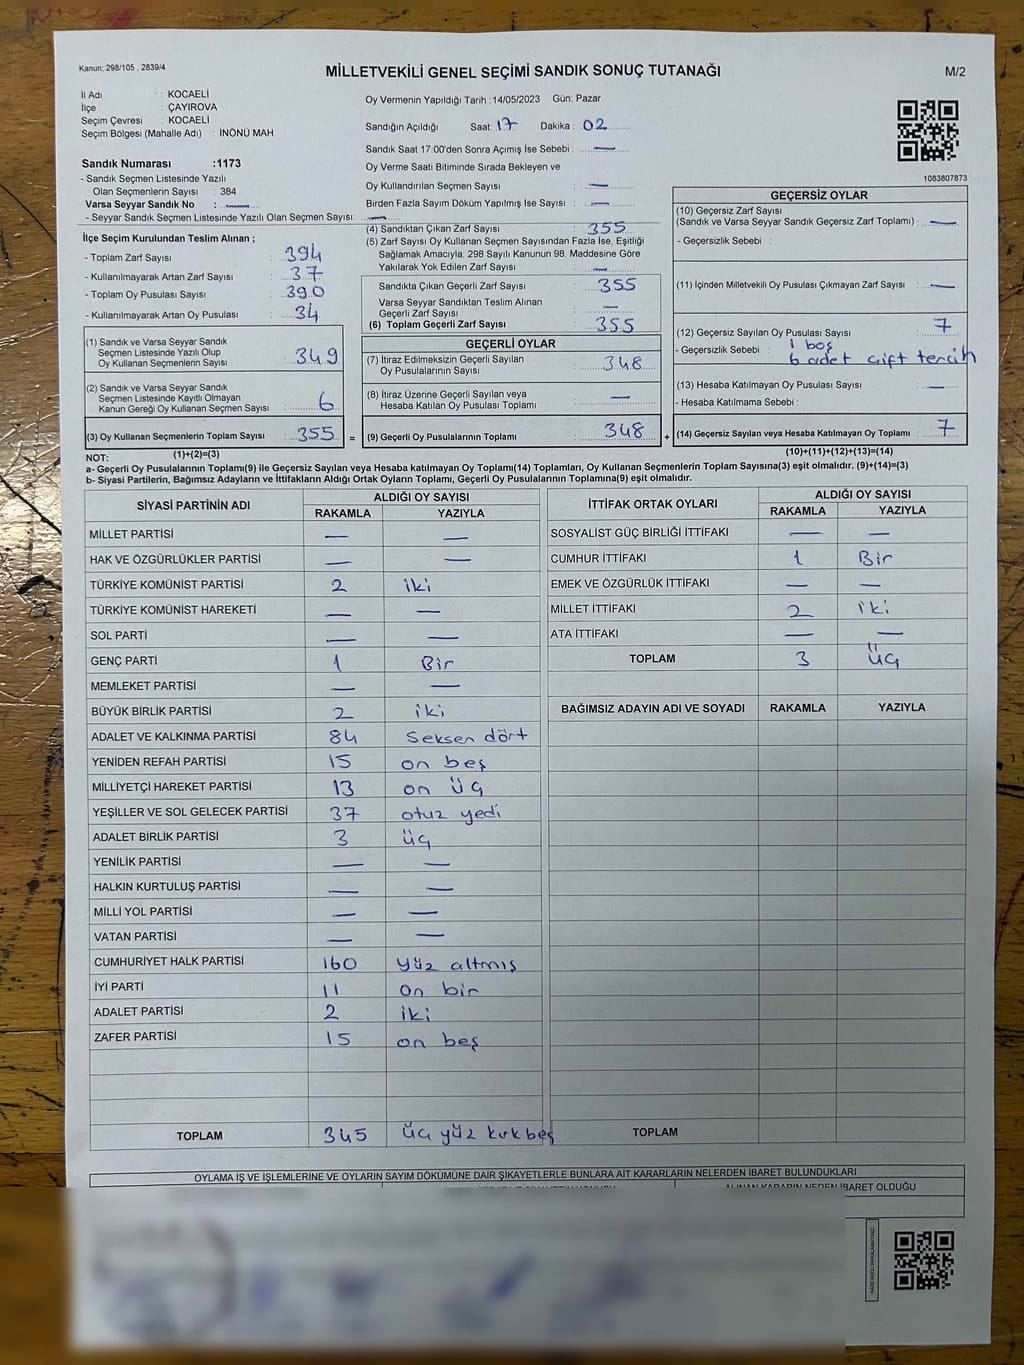 Kanun: 298/105 , 2839/4
MİLLETVEKİLİ GENEL SEÇİMİ SANDIK SONUÇ TUTANAĞI
M/2
İl Adı : KOCAELİ
İlçe : ÇAYIROVA
Seçim Çevresi : KOCAELİ
Seçim Bölgesi (Mahalle Adı) : İNÖNÜ MAH.
Sandık Numarası :1173
- Sandık Seçmen Listesinde Yazılı
Olan Seçmenlerin Sayısı : 384
Varsa Seyyar Sandık No : —
- Seyyar Sandık Seçmen Listesinde Yazılı Olan Seçmen Sayısı: —
Oy Vermenin Yapıldığı Tarih :14/05/2023 Gün: Pazar
Sandığın Açıldığı Saat: 17 Dakika : 02
Sandık Saat 17:00'den Sonra Açımış İse Sebebi : —
Oy Verme Saati Bitiminde Sırada Bekleyen ve
Oy Kullandırılan Seçmen Sayısı : —
Birden Fazla Sayım Döküm Yapılmış İse Sayısı : —
1083807873
İlçe Seçim Kurulundan Teslim Alınan ;
- Toplam Zarf Sayısı : 394
- Kullanılmayarak Artan Zarf Sayısı : 37
- Toplam Oy Pusulası Sayısı : 390
- Kullanılmayarak Artan Oy Pusulası : 34
(1) Sandık ve Varsa Seyyar Sandık
Seçmen Listesinde Yazılı Olup
Oy Kullanan Seçmenlerin Sayısı : 349
(2) Sandık ve Varsa Seyyar Sandık
Seçmen Listesinde Kayıtlı Olmayan
Kanun Gereği Oy Kullanan Seçmen Sayısı : 6
(3) Oy Kullanan Seçmenlerin Toplam Sayısı : 355 =
(1)+(2)=(3)
(4) Sandıktan Çıkan Zarf Sayısı : 355
(5) Zarf Sayısı Oy Kullanan Seçmen Sayısından Fazla İse, Eşitliği
Sağlamak Amacıyla, 298 Sayılı Kanunun 98. Maddesine Göre
Yakılarak Yok Edilen Zarf Sayısı : —
Sandıkta Çıkan Geçerli Zarf Sayısı : 355
Varsa Seyyar Sandıktan Teslim Alınan
Geçerli Zarf Sayısı : —
(6) Toplam Geçerli Zarf Sayısı : 355
GEÇERLİ OYLAR
(7) İtiraz Edilmeksizin Geçerli Sayılan
Oy Pusulalarının Sayısı : 348
(8) İtiraz Üzerine Geçerli Sayılan veya
Hesaba Katılan Oy Pusulası Toplamı : —
(9) Geçerli Oy Pusulalarının Toplamı : 348 +
GEÇERSİZ OYLAR
(10) Geçersiz Zarf Sayısı
(Sandık ve Varsa Seyyar Sandık Geçersiz Zarf Toplamı) : —
- Geçersizlik Sebebi :
(11) İçinden Milletvekili Oy Pusulası Çıkmayan Zarf Sayısı : —
(12) Geçersiz Sayılan Oy Pusulası Sayısı : 7
- Geçersizlik Sebebi : 1 boş
6 adet çift tercih
(13) Hesaba Katılmayan Oy Pusulası Sayısı : —
- Hesaba Katılmama Sebebi :
(14) Geçersiz Sayılan veya Hesaba Katılmayan Oy Toplamı : 7
(10)+(11)+(12)+(13)=(14)
NOT:
a- Geçerli Oy Pusulalarının Toplamı(9) ile Geçersiz Sayılan veya Hesaba katılmayan Oy Toplamı(14) Toplamları, Oy Kullanan Seçmenlerin Toplam Sayısına(3) eşit olmalıdır. (9)+(14)=(3)
b- Siyasi Partilerin, Bağımsız Adayların ve İttifakların Aldığı Ortak Oyların Toplamı, Geçerli Oy Pusulalarının Toplamına(9) eşit olmalıdır.
SİYASİ PARTİNİN ADI ALDIĞI OY SAYISI
RAKAMLA YAZIYLA
MİLLET PARTİSİ — —
HAK VE ÖZGÜRLÜKLER PARTİSİ — —
TÜRKİYE KOMÜNİST PARTİSİ 2 iki
TÜRKİYE KOMÜNİST HAREKETİ — —
SOL PARTİ — —
GENÇ PARTİ 1 Bir
MEMLEKET PARTİSİ — —
BÜYÜK BİRLİK PARTİSİ 2 iki
ADALET VE KALKINMA PARTİSİ 84 Seksen dört
YENİDEN REFAH PARTİSİ 15 on beş
MİLLİYETÇİ HAREKET PARTİSİ 13 on üç
YEŞİLLER VE SOL GELECEK PARTİSİ 37 otuz yedi
ADALET BİRLİK PARTİSİ 3 üç
YENİLİK PARTİSİ — —
HALKIN KURTULUŞ PARTİSİ — —
MİLLİ YOL PARTİSİ — —
VATAN PARTİSİ — —
CUMHURİYET HALK PARTİSİ 160 yüz altmış
İYİ PARTİ 11 on bir
ADALET PARTİSİ 2 iki
ZAFER PARTİSİ 15 on beş
TOPLAM 345 üç yüz kırk beş
İTTİFAK ORTAK OYLARI ALDIĞI OY SAYISI
RAKAMLA YAZIYLA
SOSYALİST GÜÇ BİRLİĞİ İTTİFAKI — —
CUMHUR İTTİFAKI 1 Bir
EMEK VE ÖZGÜRLÜK İTTİFAKI — —
MİLLET İTTİFAKI 2 iki
ATA İTTİFAKI — —
TOPLAM 3 üç
BAĞIMSIZ ADAYIN ADI VE SOYADI RAKAMLA YAZIYLA
TOPLAM
OYLAMA İŞ VE İŞLEMLERİNE VE OYLARIN SAYIM DÖKÜMÜNE DAİR ŞİKAYETLERLE BUNLARA AİT KARARLARIN NELERDEN İBARET BULUNDUKLARI
ALINAN KARARIN NEDEN İBARET OLDUĞU